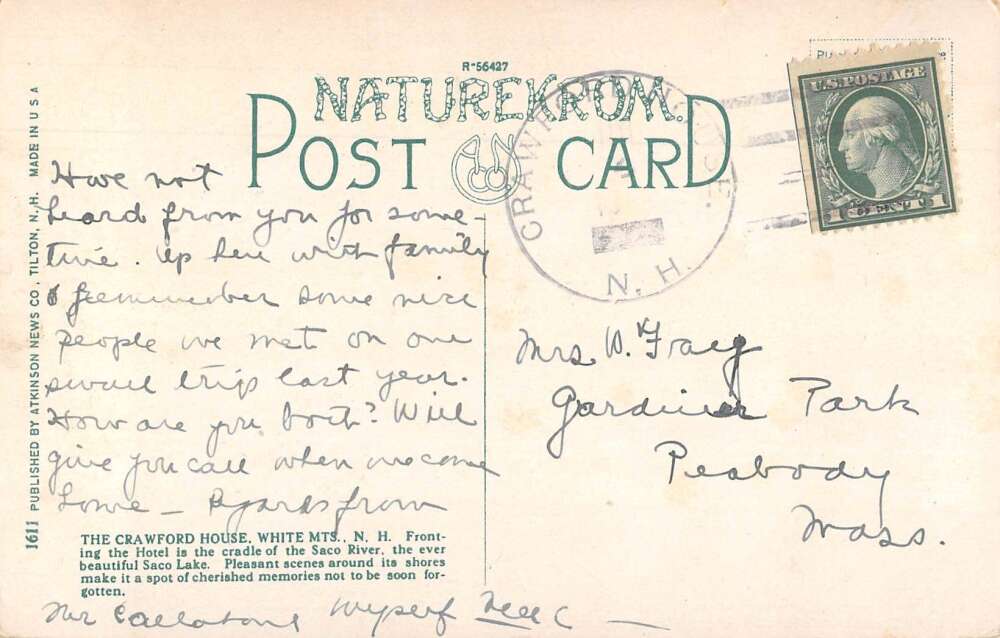 R-56427
NATUREKROM.
POST CARD
ANCO.
CRAWFORD HOUSE
N. H.
U.S. POSTAGE
1 CENT 1
Have not
heard from you for some-
time. Up here with family
& remember some nice
people we met on our
small trip last year.
How are you both? Will
give you call when we come
home — Regards from
Mrs
Myself
Mrs W. 
Gardner Park
Peabody
Mass.
THE CRAWFORD HOUSE, WHITE MTS., N. H. Front-
ing the Hotel is the cradle of the Saco River, the ever
beautiful Saco Lake. Pleasant scenes around its shores
make it a spot of cherished memories not to be soon for-
gotten.
1611 PUBLISHED BY ATKINSON NEWS CO., TILTON, N. H. MADE IN U S A